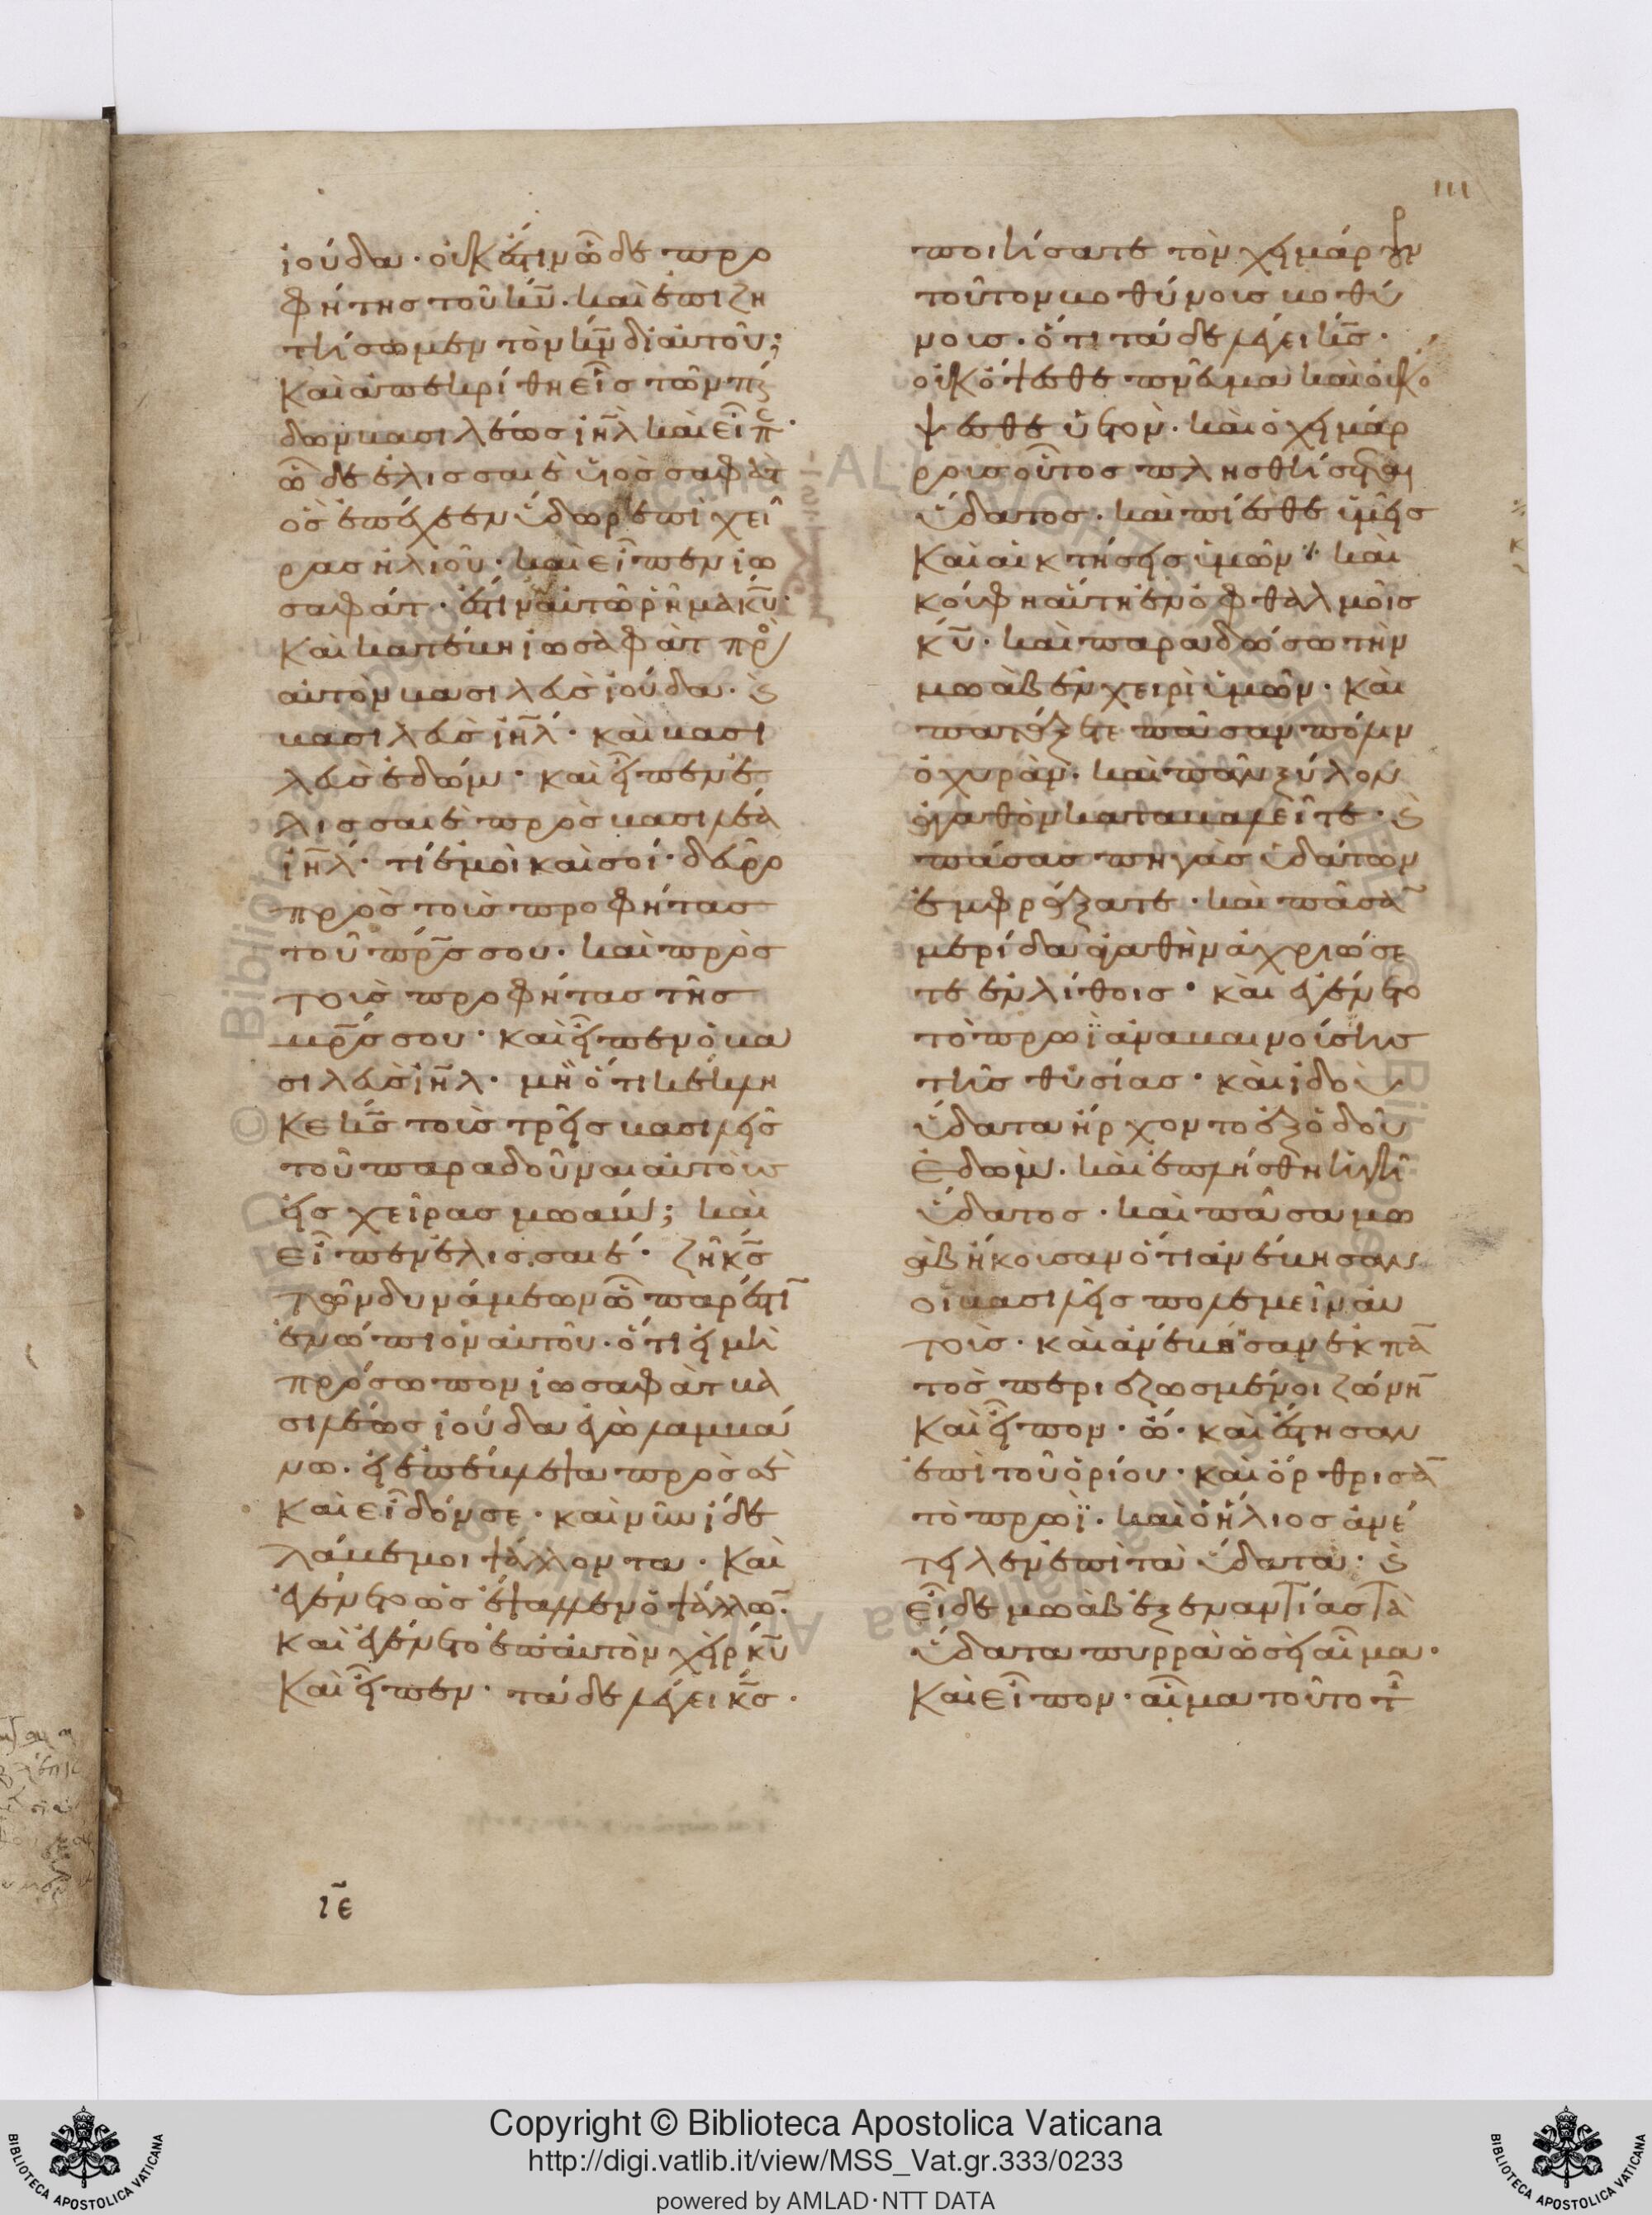 111
ἰούδα· οὐκ ἔστιν ὧδε προ
φήτης τοῦ κ̅υ̅. καὶ ἐπιζη
τήσωμεν τὸν κ̅ν̅ δἰ αὐτοῦ;
Καὶ ἀπεκρίθη εἷς τῶν παί
δων βασιλέως ἰη̅λ̅ καὶ εἶπ̅·
ὧδε ἐλισσαιὲ υἱὸς σαφὰτ
ὃς ἐπέχεεν ὕδωρ ἐπὶ χεῖ
ρας ἠλιοῦ· καὶ εἶπεν ἰω
σαφάτ· ἔστιν αὐτῶ ῥῆμα κ̅υ̅·
Καὶ κατέβη ἰωσαφὰτ πρὸς
αὐτὸν βασιλεὺς ἰούδα· καὶ
βασιλεὺς ἰη̅λ̅· καὶ βασι
λεὺς ἐδώμ· καὶ εἶπεν ἐ
λισσαιὲ πρὸς βασιλέα
ἰη̅λ̅· τί ἐμοὶ καὶ σοί· δεῦρο
πρὸς τοὺς προφήτας
τοῦ πρ̅σ̅ σου· καὶ πρὸς
τοὺς προφήτας τῆς
μρ̅σ̅ σου· καὶ εἶπεν ὁ βα
σιλεὺς ἰη̅λ̅· μὴ ὅτι κέκλη
κε κ̅σ̅ τοὺς τρεῖς βασιλεῖς
τοῦ παραδοῦναι αὐτοὺς
εἰς χεῖρας μωαβ; καὶ
εἶπεν ἐλισσαιέ· ζῆ κ̅σ̅
τῶν δυνάμεων ὧ παρέστ̅ι̅
ἐνώπιον αὐτοῦ· ὅτι εἰ μὴ
πρόσωπον ἰωσαφὰτ βα
σιλέως ἰούδα ἐγὼ λαμβά
νω. εἰ ἐπέβλεψα πρὸς σὲ
Καὶ εἶδόν σε· καὶ νῦν ἰδὲ
λάβε μοι ψάλλοντα· Καὶ
ἐγένετο ὡς ἔψαλλεν ὁ ψάλλω̅ν̅·
καὶ ἐγένετο ἐπ' αὐτὸν χεὶρ κ̅υ̅
Καὶ εἶπεν· τάδε λέγει κ̅σ̅·
ι̅ε̅
ποιήσατε τὸν χειμάρρουν
τοῦτον βοθύνους βοθύ
νους· ὅτι τάδε λέγει κ̅σ̅·
οὐκ ὄψεσθε πνεῦμα καὶ οὐκ ὄ
ψεσθε ὑετόν· καὶ ὁ χειμάρ
ρους οὗτος πλησθήσεται
ὕδατος· καὶ πίεσθε ὑμεῖς
Καὶ αἱ κτήσεις ὑμῶν· καὶ
κούφη αὕτη ἐν ὀφθαλμοῖς
κ̅υ̅· καὶ παραδώσω τὴν
μωὰβ ἐν χειρὶ ὑμῶν· καὶ
πατάξετε πᾶσαν πόλιν
ὀχυράν· καὶ πᾶν ξύλον
ἀγαθὸν καταβαλεῖτε· καὶ
πάσας πηγὰς ὑδάτων
ἐμφράξατε· καὶ πᾶσα̅
μερίδα ἀγαθὴν ἀχρειώσε
τε ἐν λίθοις· καὶ ἐγένετο
τὸ πρωῒ ἀναβαινούσης
τῆς θυσίας· καὶ ἰδοὺ
ὕδατα ἤρχοντο ἐξ ὁδοῦ
ἐδώμ. καὶ ἐπλήσθη ἡ γῆ
ὕδατος· καὶ πᾶσα μω
ὰβ ἤκουσαν ὅτι ἀνέβησαν
οἱ βασιλεῖς πολεμεῖν αὐ
τοὺς· καὶ ἀνεβόησαν ἐκ πα̅
τὸς περιεζωσμένοι ζώνη̅
Καὶ εἶπον· ὤ· καὶ ἔστησαν
ἐπὶ τοῦ ὁρίου· καὶ ὤρθρισα̅
τὸ πρωΐ· καὶ ὁ ἥλιος ἀνέ
τειλεν ἐπὶ τὰ ὕδατα· καὶ
εἶδε μωὰβ ἐξεναντίας τὰ
ὕδατα πυρρὰ ὡσεὶ αἷμα·
Καὶ εἶπον· αἷμα τοῦτο τῆ̅
Copyright © Biblioteca Apostolica Vaticana
http://digi.vatlib.it/view/MSS_Vat.gr.333/0233
powered by AMLAD·NTT DATA
BIBLIOTECA APOSTOLICA VATICANA
BIBLIOTECA APOSTOLICA VATICANA